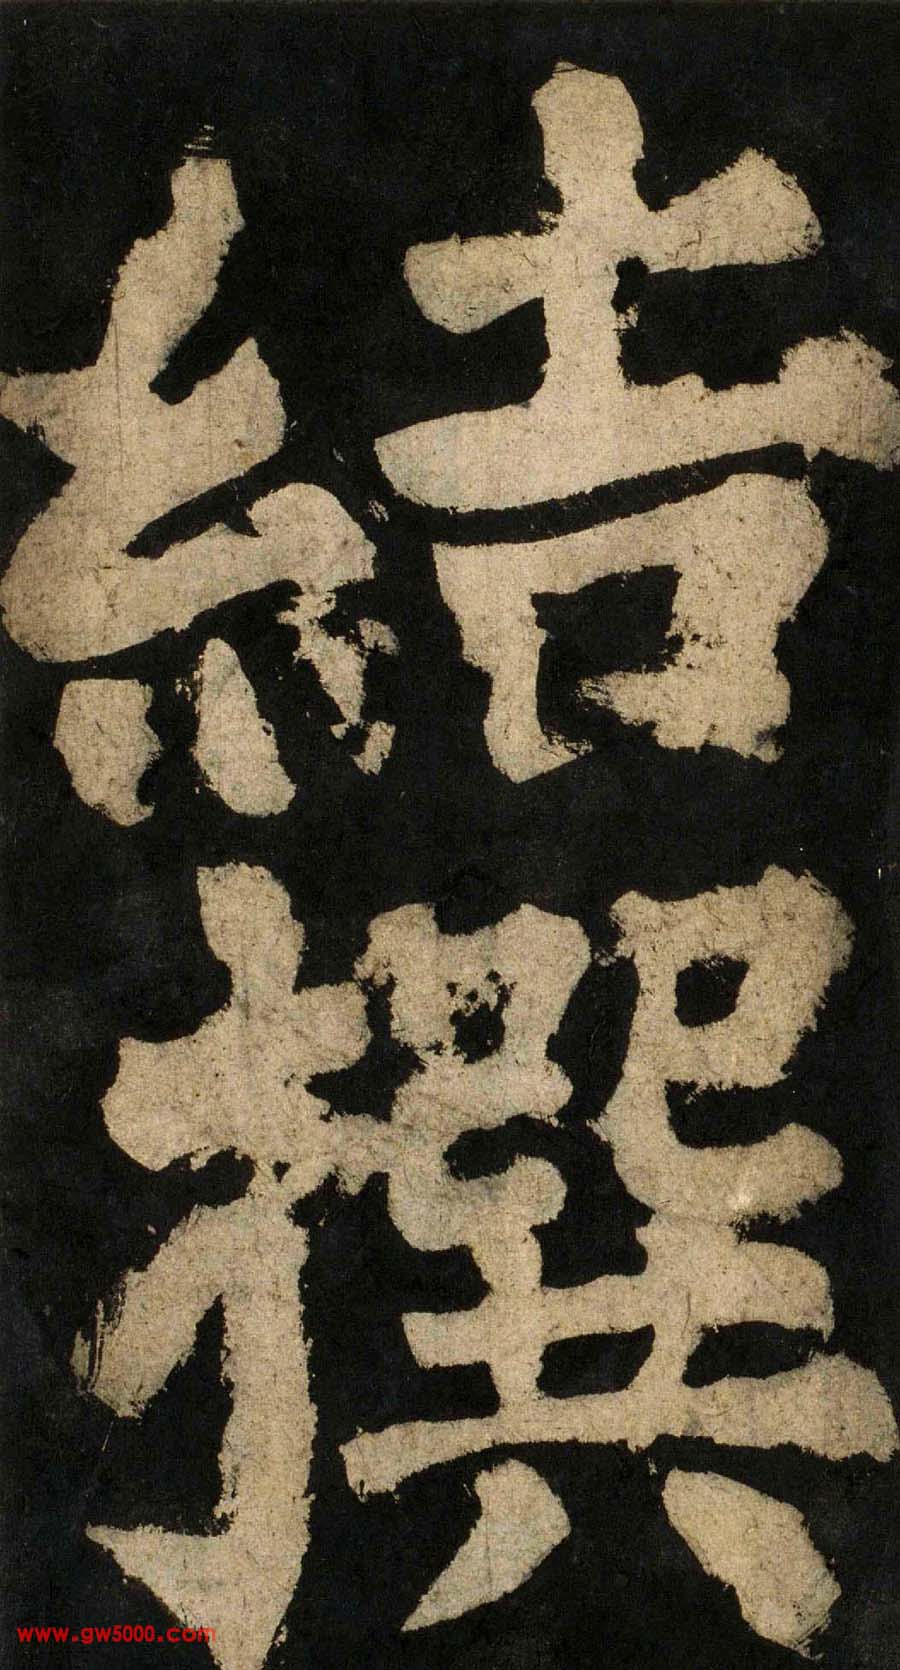 結
撰
www.gw5000.com